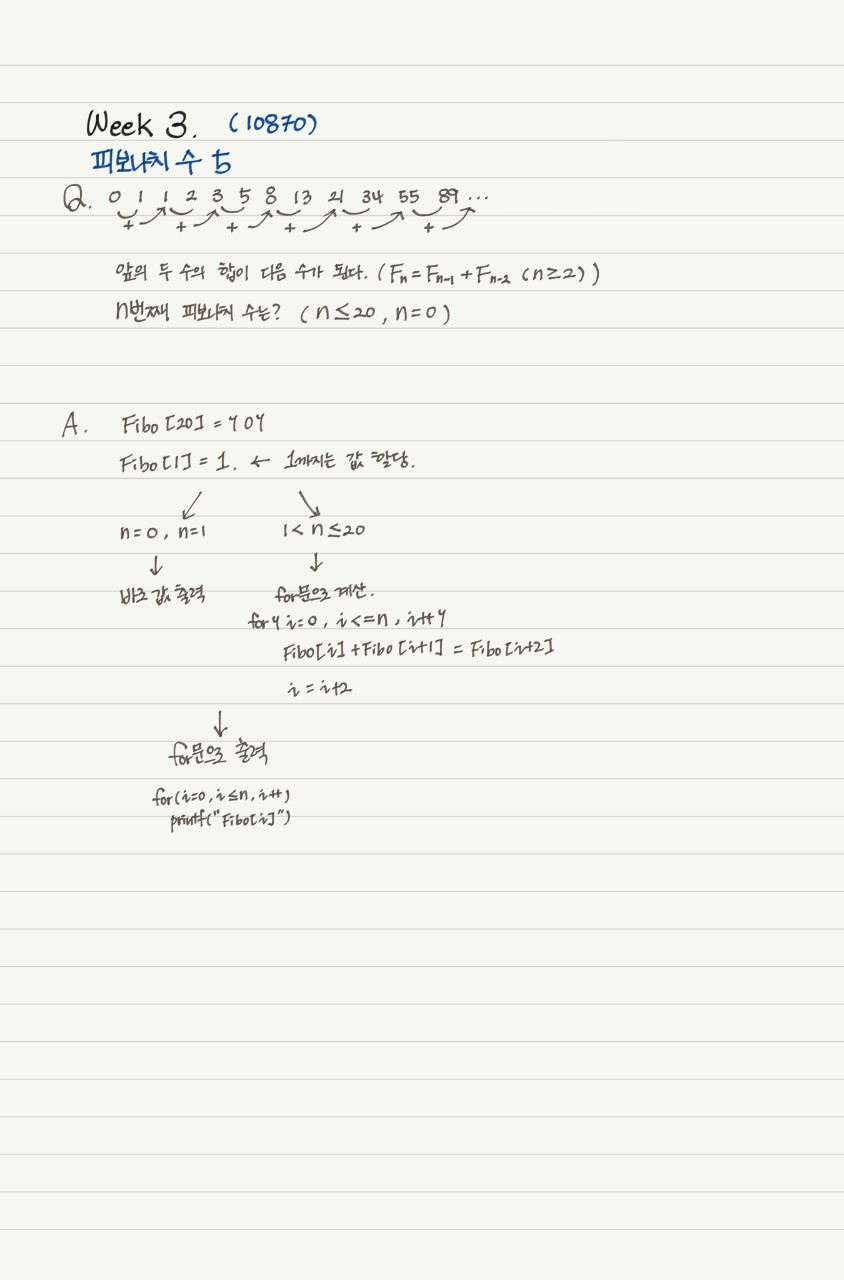 Week 3. (10870)
피보나치 수 5
Q. 0 1 1 2 3 5 8 13 21 34 55 89 ...
+ + + + + +
앞의 두 수의 합이 다음 수가 된다. (Fn = Fn-1 + Fn-2 (n≥2))
n번째 피보나치 수는? (n≤20, n=0)
A. Fibo [20] = {0}
Fibo [1] = 1. ← 1까지는 값 할당.
↙ ↘
n=0, n=1 1< n ≤20
↓ ↓
바로 값 출력 for문으로 계산.
for{ i=0, i<=n, i++}
Fibo[i] + Fibo [i+1] = Fibo [i+2]
i = i+2
↓
for문으로 출력
for(i=0, i≤n, i++)
printf("Fibo[i]")